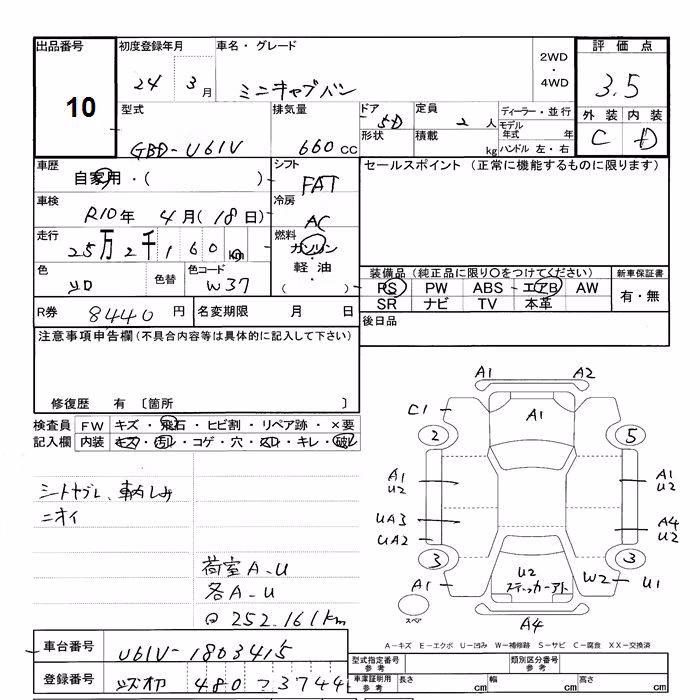 出品番号 初度登録年月 車名・グレード 2WD・4WD 評価点
10 24 3月 ミニキャブバン 3.5
型式 排気量 ドア 定員 ディーラー・並行 外装 内装
GBD-U61V 660cc 5D 2人 モデル年式 年 C D
形状 積載 kg ハンドル 左・右
車歴 シフト セールスポイント (正常に機能するものに限ります)
自家用・( ) FAT
車検 冷房
R10年 4月(18日) AC
走行 燃料
25万2千160km ガソリン・軽油・( )
色 色替 色コード 装備品 (純正品に限り〇をつけてください) 新車保証書
W37 PS PW ABS エアB AW 有・無
R券 8440円 名変期限 月 日 SR ナビ TV 本革
後日品
注意事項申告欄(不具合内容等は具体的に記入して下さい)
修復歴 有 〔箇所 〕
検査員 FW キズ・飛石・ヒビ割・リペア跡・×要
記入欄 内装 キズ・汚レ・コゲ・穴・スレ・キレ・破レ
シートヤブレ、車内しみ
ニオイ
荷室A-U
各A-U
252.161km
A1 A2
C1 A1
2 5
A1 U2 A1 U2
UA3 A4 U2
UA2
3 3
A1 U2 W2 U1
ステッカーアト
スペア A4
A-キズ E-エクボ U-凹み W-補修跡 S-サビ C-腐食 XX-交換済
車台番号 U61V-1803415
型式指定番号 参考 類別区分番号 参考
登録番号 480 3744
車庫証明用 参考 長さ cm 幅 cm 高さ cm